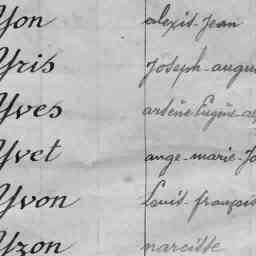 Yon alexis-Jean
Yris Joseph-augu
Yves arsène Eugène-a
Yvet ange-marie-Jo
Yvon Louis-françois
Yzon narcisse